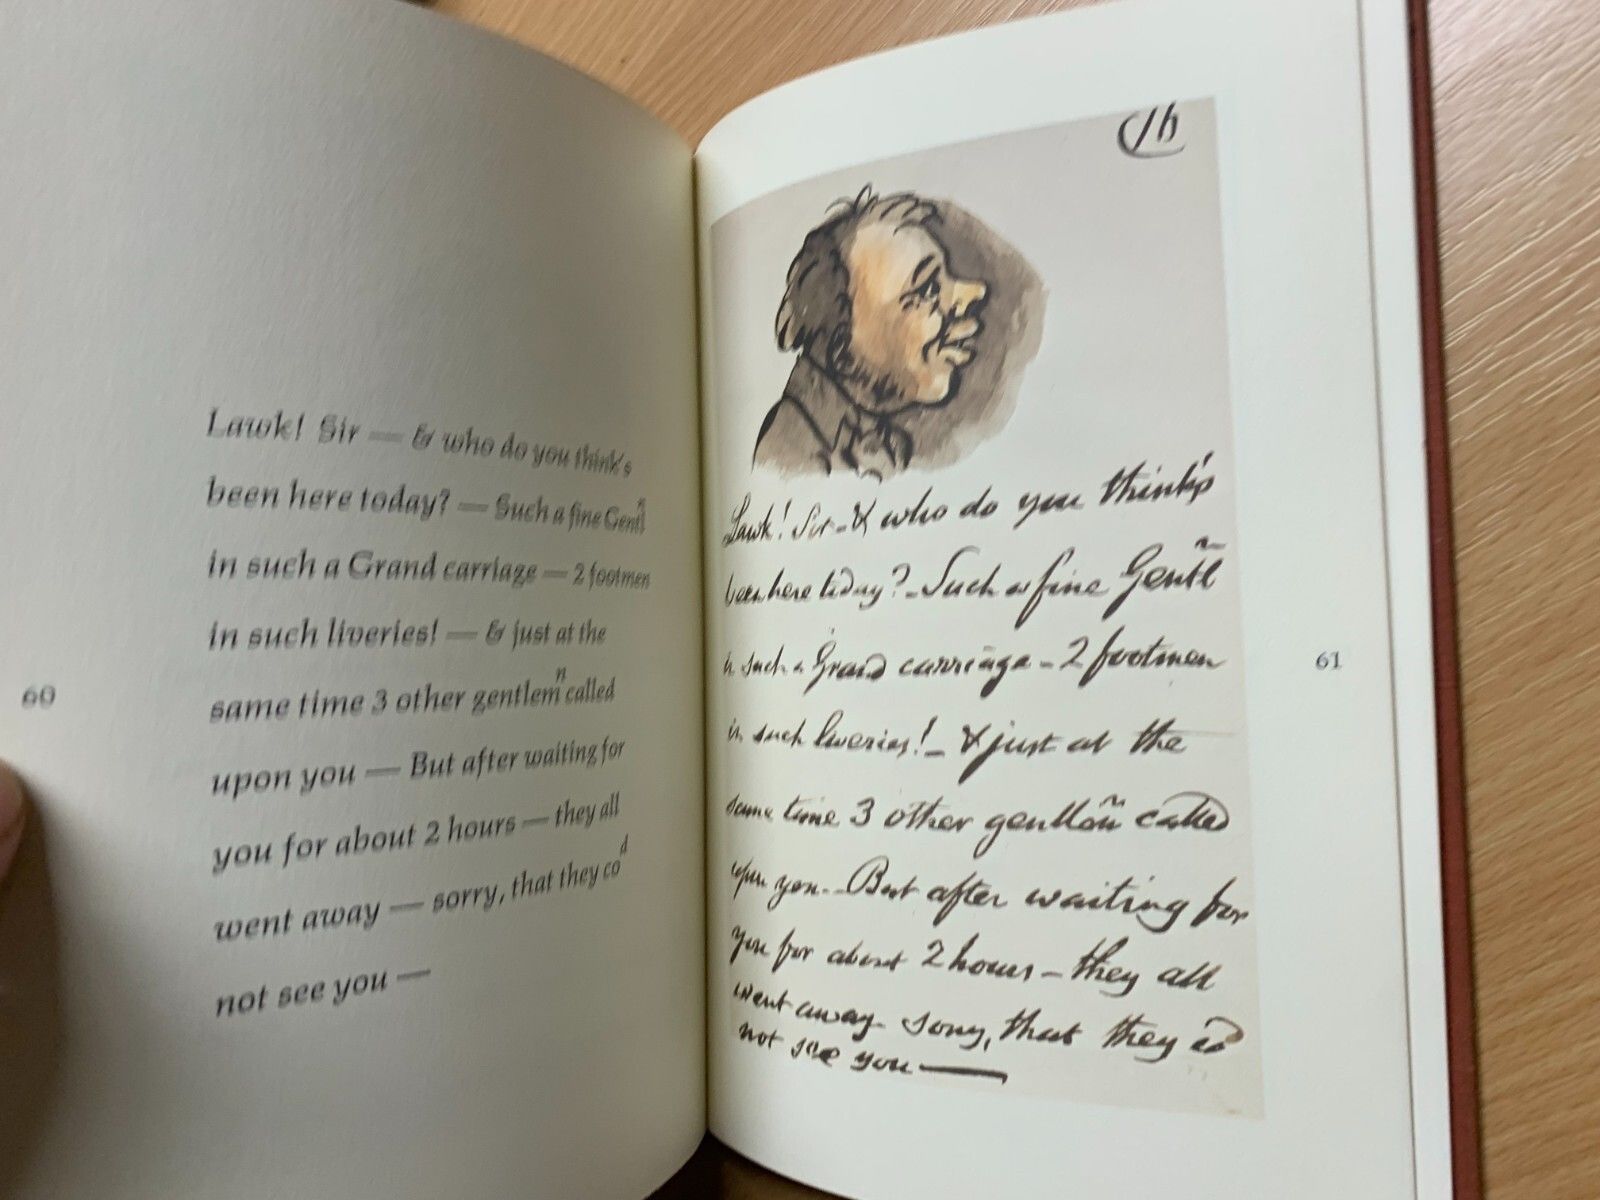 Lawk! Sir — & who do you think's
been here today? — Such a fine Gentlñ
in such a Grand carriage — 2 footmen
in such liveries! — & just at the
same time 3 other gentlemⁿ called
upon you — But after waiting for
you for about 2 hours — they all
went away — sorry, that they coᵈ
not see you —
60
Lawk! Sir - & who do you think's
been here today? - Such a fine Gentlñ
in such a Grand carriage - 2 footmen
in such liveries! - & just at the
same time 3 other gentlemñ called
upon you - But after waiting for
you for about 2 hours - they all
went away - sorry, that they coᵈ
not see you —
61